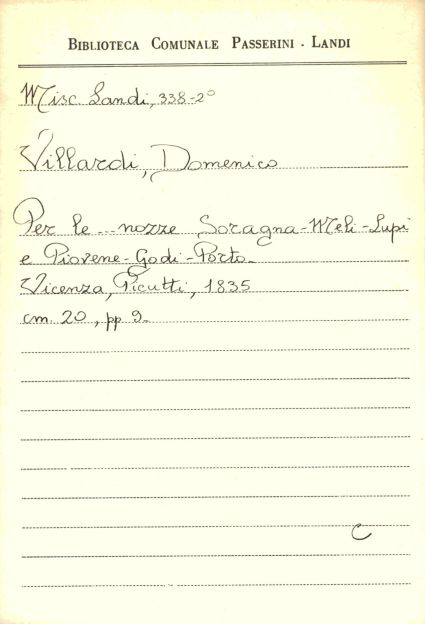 BIBLIOTECA COMUNALE PASSERINI - LANDI
Misc. Landi, 338-2º
Villardi, Domenico
Per le ... nozze Soragna-Meli-Lupi
e Piovene-Godi-Porto-
Vicenza, Picutti, 1835
cm. 20, pp 9-
C